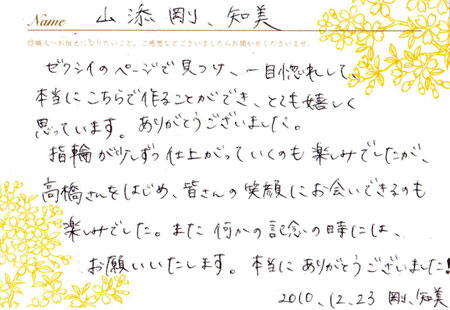 Name 山添 剛、知美
ゼクシィのページで見つけ、一目惚れして、
本当にこちらで作ることができ、とても嬉しく
思っています。ありがとうございました。
指輪が少しずつ仕上がっていくのも楽しみでしたが、
高橋さんをはじめ、皆さんの笑顔にお会いできるのも
楽しみでした。また何かの記念の時には、
お願いいたします。本当にありがとうございました!
2010、12、23 剛、知美